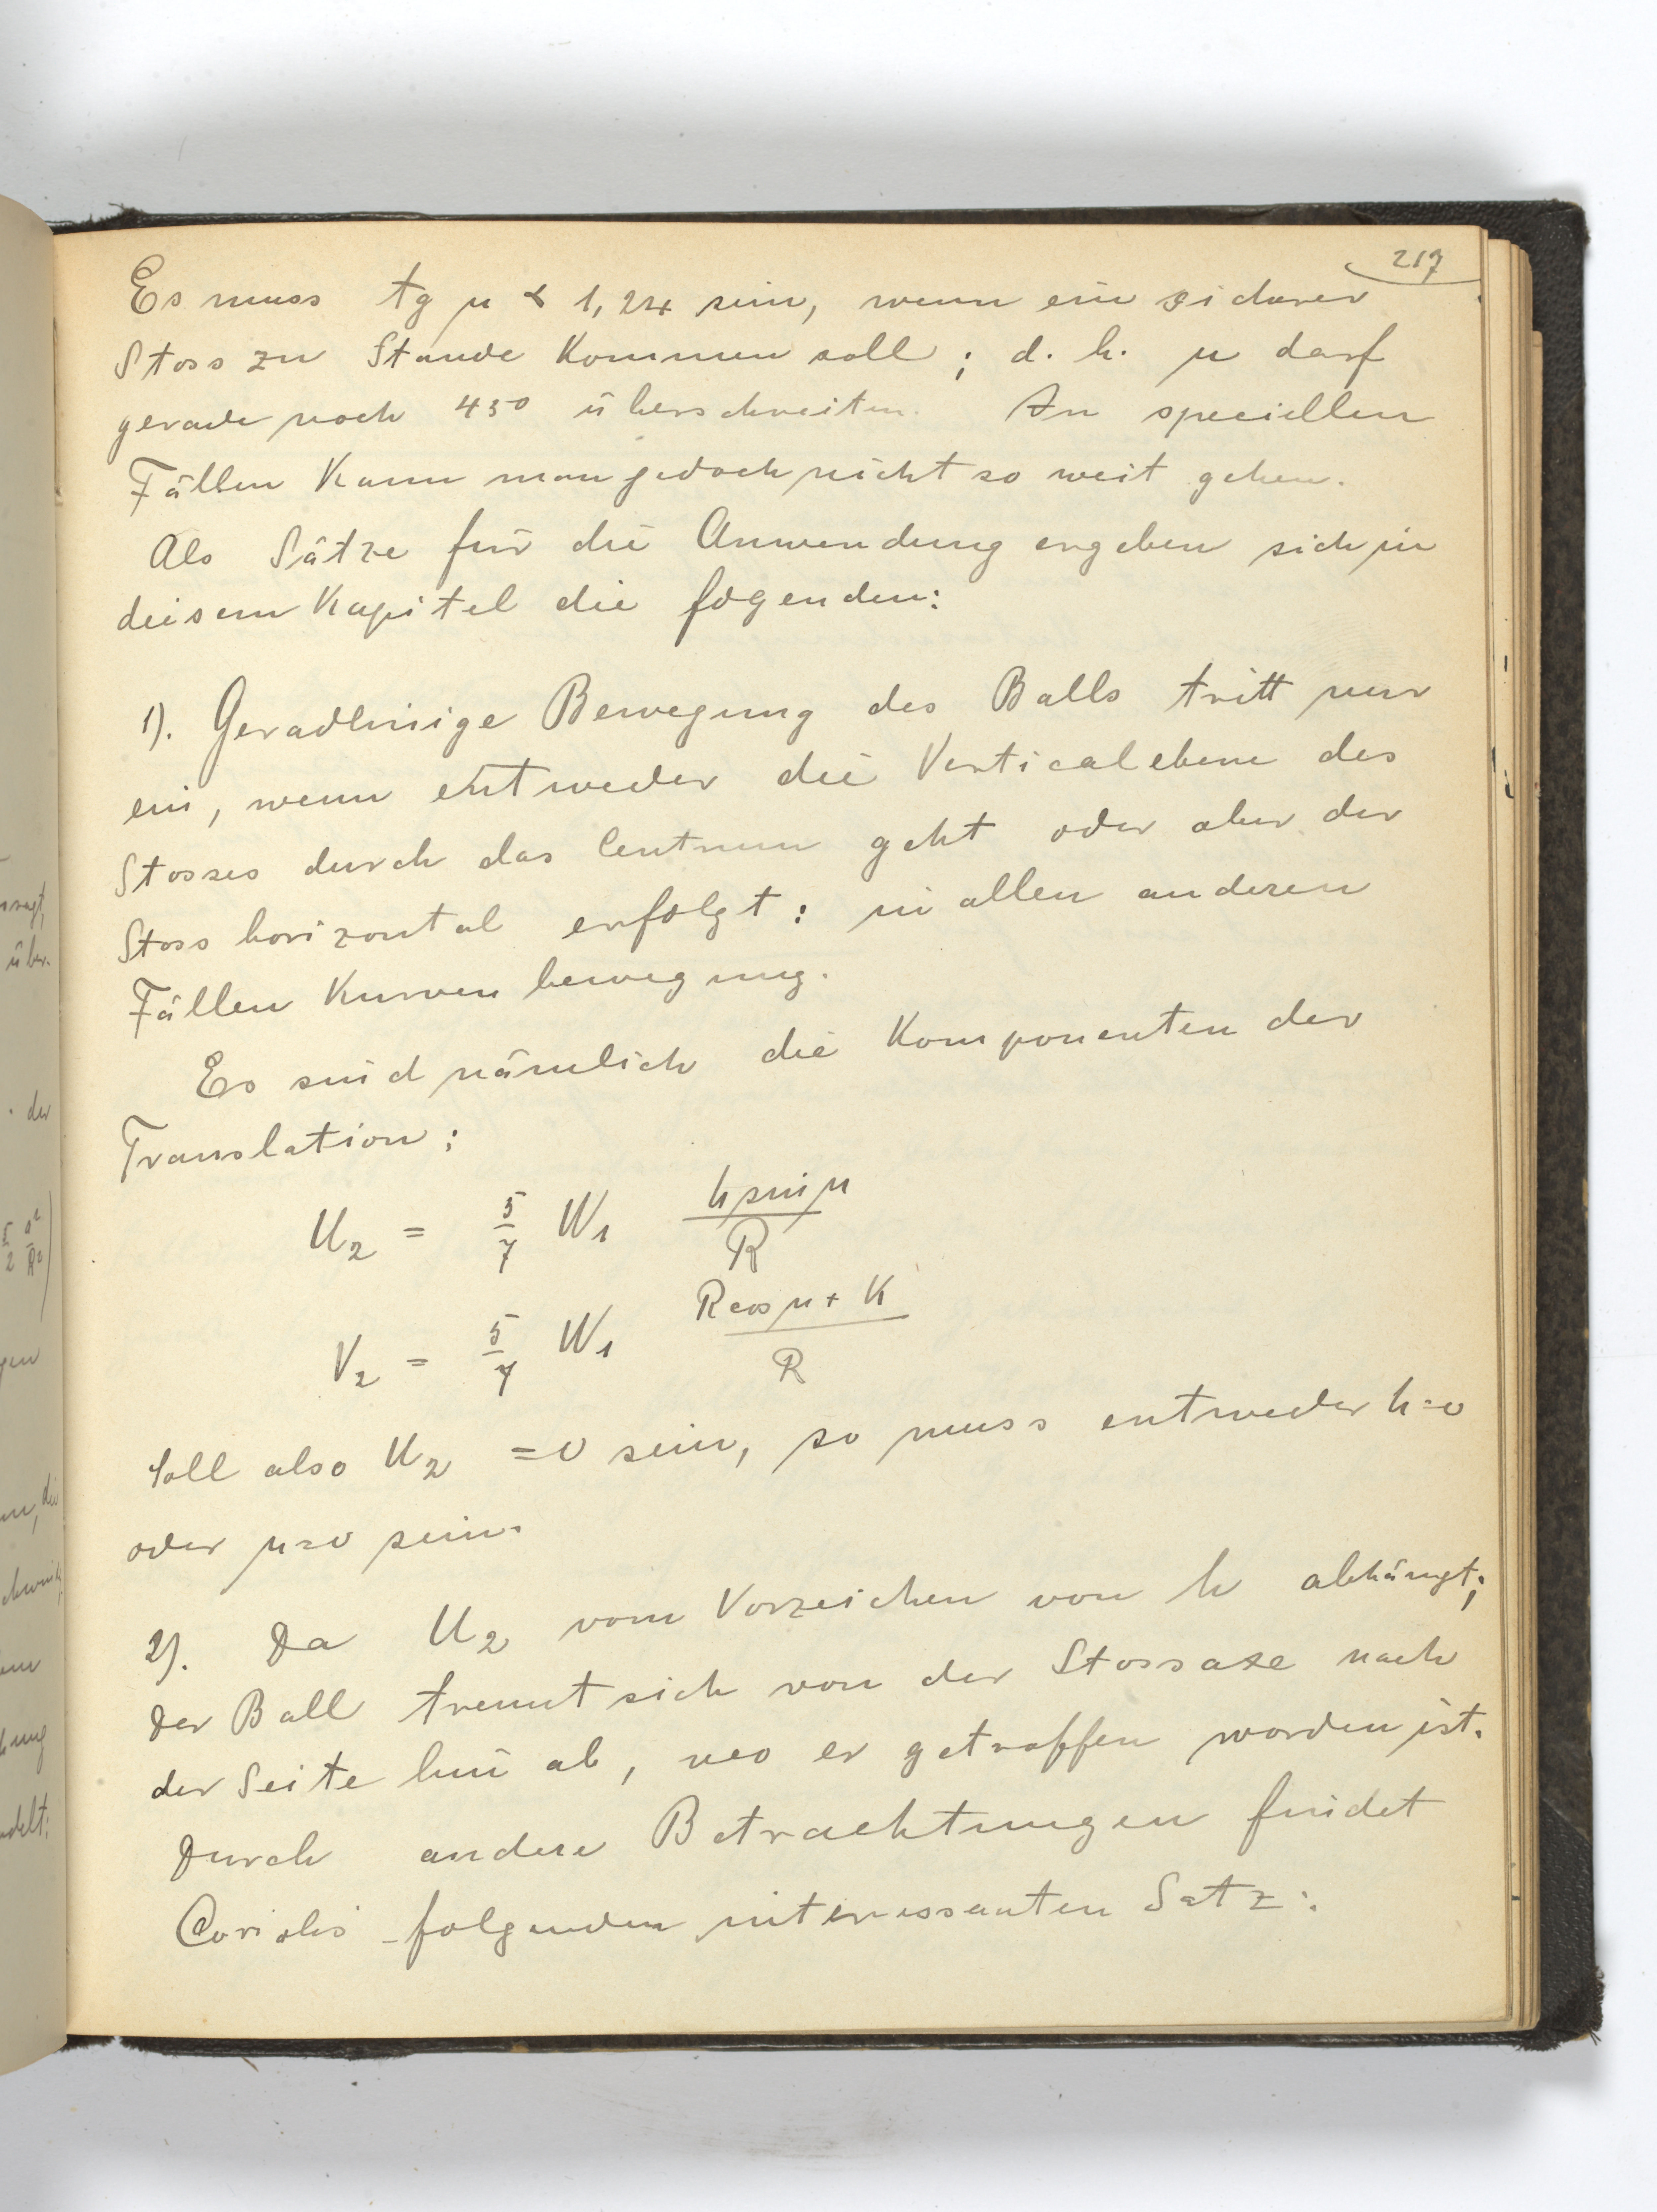 217
Es muss tg μ < 1,24 sein, wenn ein sicherer
Stoss zu Stande kommen soll; d. h. μ darf
gerade noch 45° überschreiten. In speciellen
Fällen kann man jedoch nicht so weit gehen.
Als Sätze für die Anwendung ergeben sich in
diesem Kapitel die folgenden:
1). Geradlinige Bewegung des Balls tritt nur
ein, wenn entweder die Verticalebene des
Stosses durch das Centrum geht oder aber der
Stoss horizontal erfolgt: in allen anderen
Fällen Kurvenbewegung.
Es sind nämlich die Komponenten der
Translation:
U₂ = 5/7 W₁ h sin μ / R
V₂ = 5/7 W₁ R cos μ + K / R
Soll also U₂ = 0 sein, so muss entweder h = 0
oder μ = 0 sein.
2). Da U₂ vom Vorzeichen von h abhängt;
Der Ball trennt sich von der Stossaxe nach
der Seite hin ab, wo er getroffen worden ist.
Durch andere Betrachtungen findet
Coriolis folgenden interessanten Satz:
über.
der
5/2 a²/R²
gen
en, die
ung
delt: